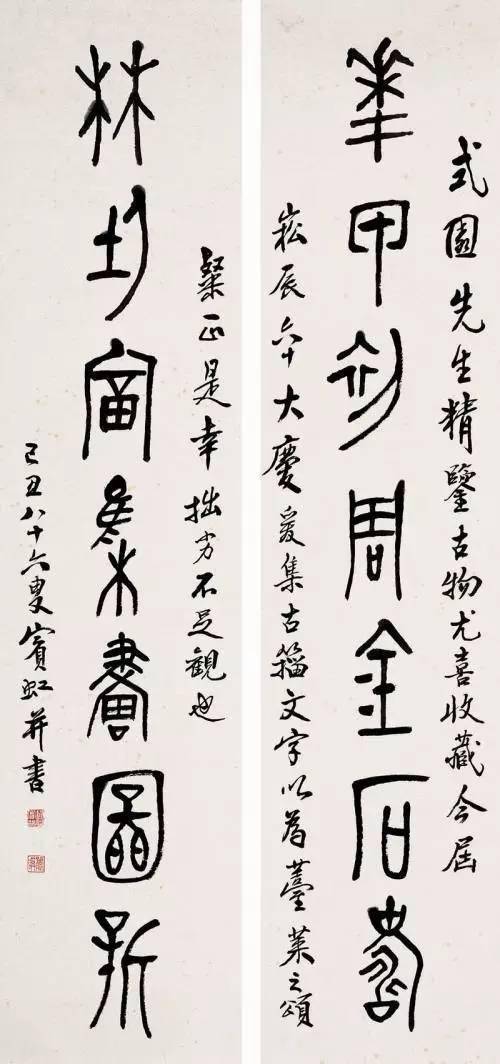 式園先生精鑒古物尤喜收藏今屆
華甲初周金石壽
崧辰六十大慶爰集古籀文字以為薹萊之頌
粲正是幸拙劣不足觀也
林富集畫圖新
己丑八十六叟賓虹并書